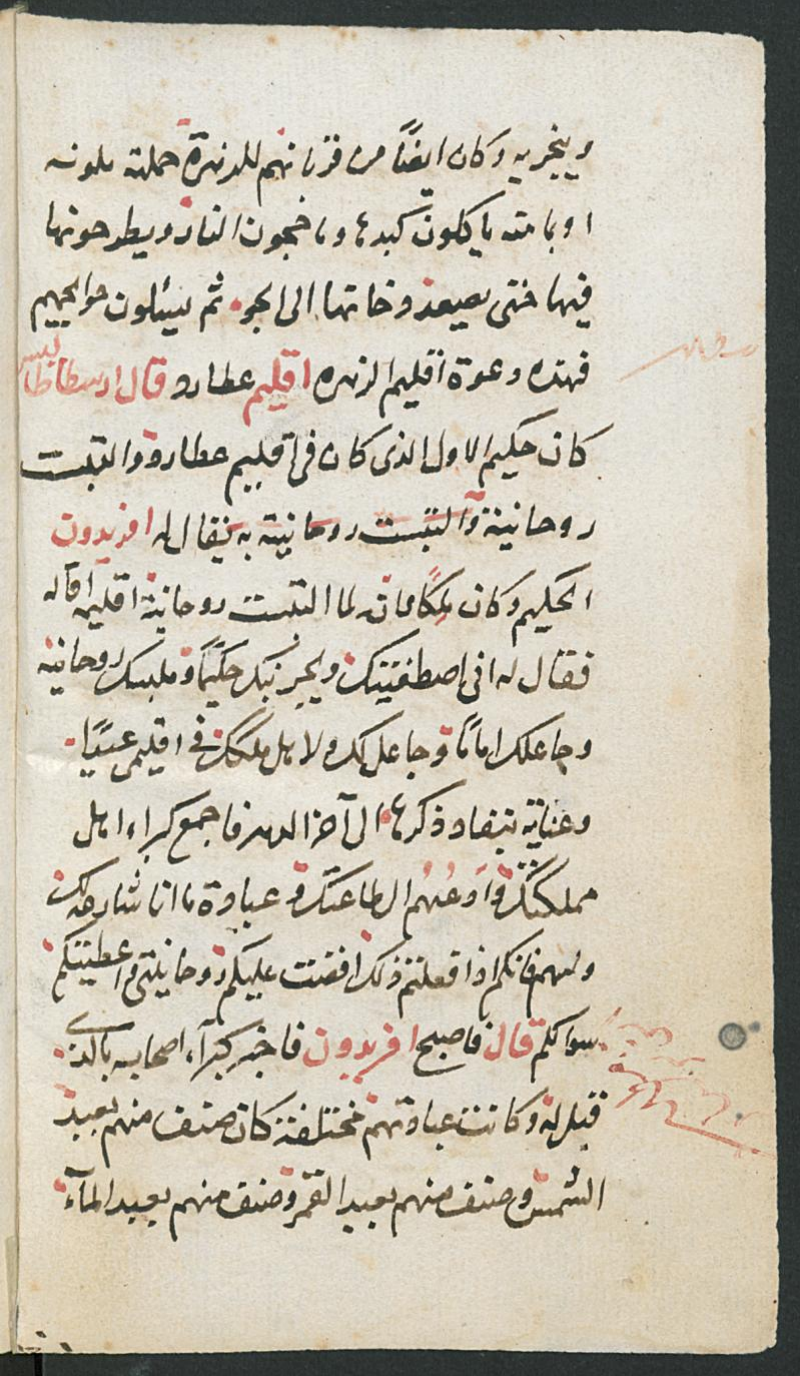 وينجر به وكان ايضًا من قربانهم للزهرة حملته يلونه
او بامته ياكلون كبدها وياخجون النار ويطرحونها
فيها حتى يصعد دخانها الى الجو ثم يسئلون حوايجهم
فهذه دعوة اقليم الزهره اقليم عطارد قال ارسطاطاليس
كان حكيم الاول الذى كان فى اقليم عطارد والتبست
روحانية والتبست روحانيته به يقال له افريدون
الحكيم وكان ملكا لما التبست روحانية اقليمه
فقال له انى اصطفيتك حكيمًا وملبسك روحانية
وجاعلك امامًا وجاعل لك ولاهل ملكك فى اقليمى
وعناية ذكرها الى آخر الدهر فاجمع كبراء اهل
مملكتك وادعهم الى طاعتك وعبادة ما انا شارعه لك
ولهم فانكم اذا فعلتم ذلك افضت عليكم روحانيتى واعطيتكم
سوالكم قال فاصبح افريدون فاخبر كبرآء اصحابه بالذى
قيل له وكانت عبادتهم مختلفة كان صنف منهم يعبد
الشمس وصنف منهم يعبد القمر وصنف منهم يعبد المآء